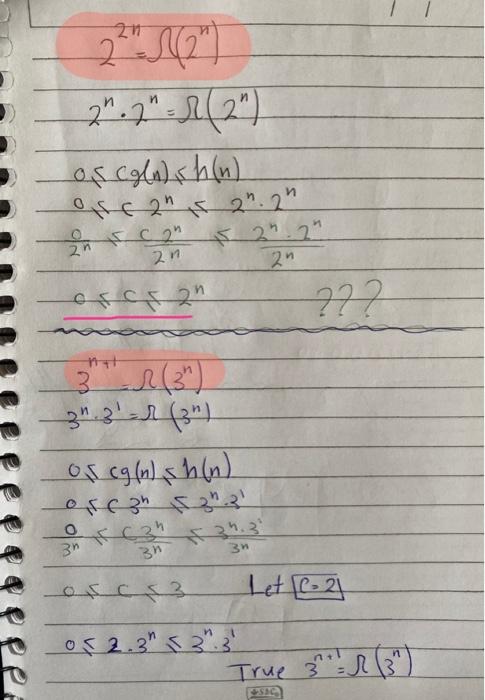 2^{2n} = Ω(2^n)
2^n · 2^n = Ω(2^n)
0 ≤ cg(n) ≤ h(n)
0 ≤ c 2^n ≤ 2^n · 2^n
0/2^n ≤ c 2^n/2^n ≤ 2^n · 2^n/2^n
0 ≤ c ≤ 2^n ???
3^{n+1} = Ω(3^n)
3^n · 3^1 = Ω(3^n)
0 ≤ cg(n) ≤ h(n)
0 ≤ c 3^n ≤ 3^n · 3^1
0/3^n ≤ c 3^n/3^n ≤ 3^n · 3^1/3^n
0 ≤ c ≤ 3 Let c = 2
0 ≤ 2 · 3^n ≤ 3^n · 3^1
True 3^{n+1} = Ω(3^n)